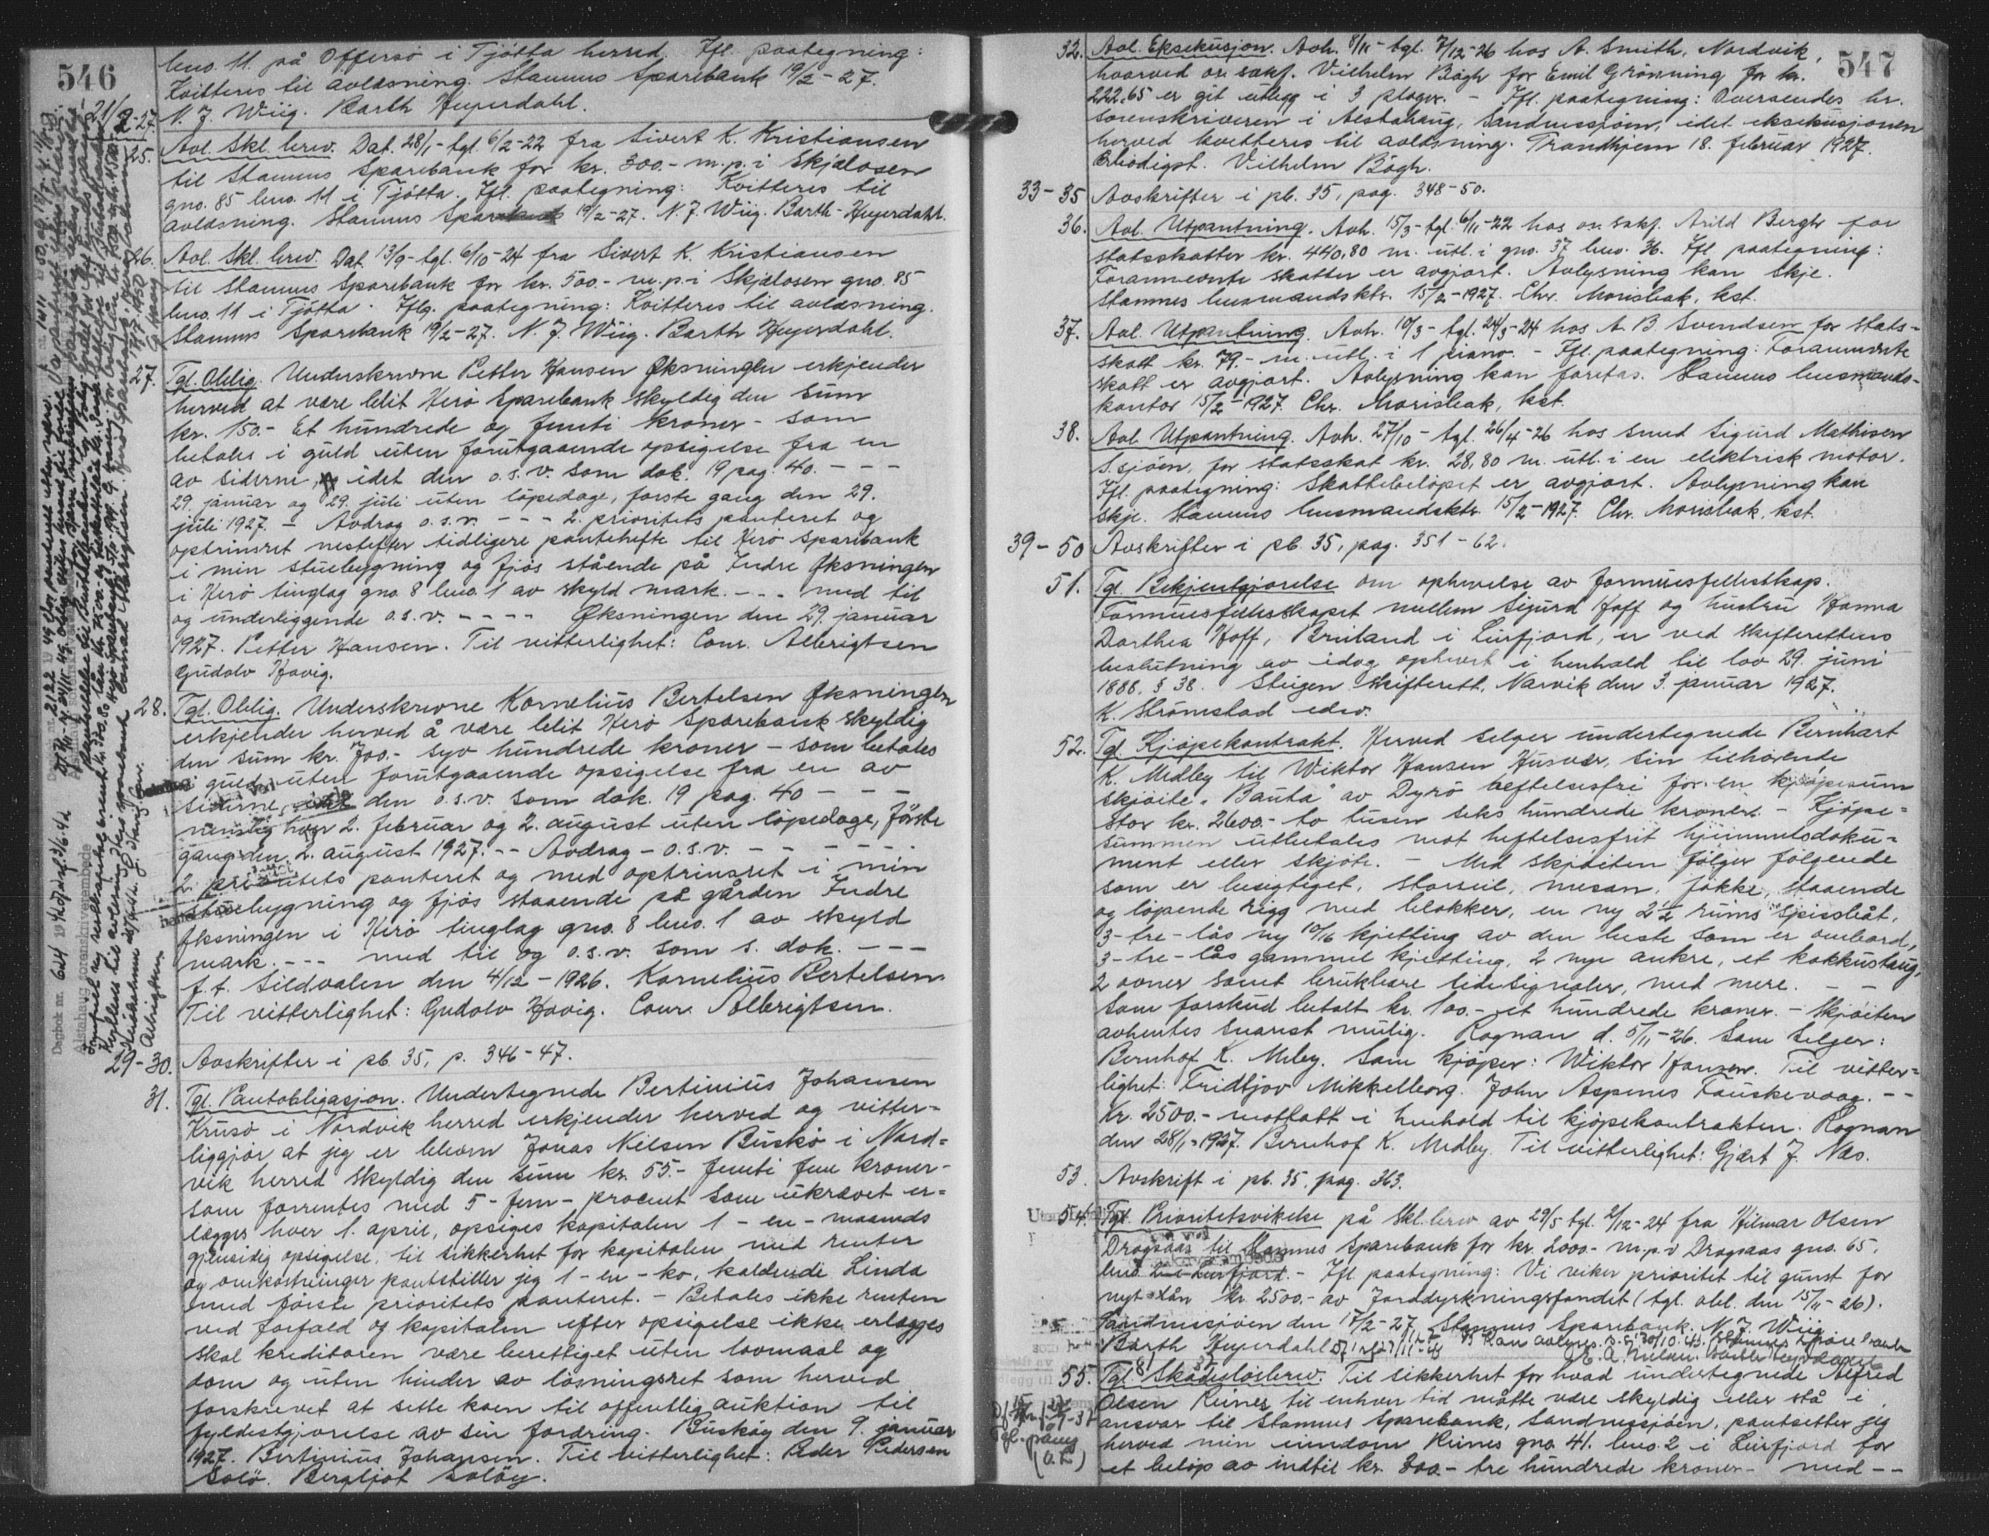 546
bno. 11 på Offersö i Tjötta herred. Ifl. paategning:
Kvitteres til avlæsning. Stamnes Sparebank 19/2-27.
N. J. Wiig. Barth Heyerdahl.
21/2-27.
25. Avl. Skl. brev. Dat. 28/1 - tgl. 6/2-22 fra Sivert K. Kristiansen
til Stamnes Sparebank for kr. 300.- m.p.i Skjälosen
gno. 85 bno. 11 i Tjötta. Ifl. paategning: Kvitteres til
avlæsning. Stamnes Sparebank 19/2-27. N. J. Wiig. Barth-Heyerdahl.
26. Avl. Skl. brev. Dat. 13/9 - tgl. 6/10-24 fra Sivert K. Kristiansen
til Stamnes Sparebank for kr. 500.- m.p.i Skjälosen gno. 85
bno. 11 i Tjötta. Iflg. paategning: Kvitteres til avlæsning.
Stamnes Sparebank 19/2-27. N. J. Wiig. Barth Heyerdahl.
27. Tgl. Oblig. Underskrevne Petter Hansen Øksningen erkjender
herved at være blit Herö Sparebank skyldig den sum
kr. 150.- Et hundrede og femti kroner - som
betales i guld uten forutgaaende opsigelse fra en
av siderne, idet den o.s.v. som dok. 19 pag. 40. - - -
29. januar og 29. juli uten löpedage, förste gang den 29.
juli 1927. - Avdrag o.s.v. - - - 2. prioritets panteret og
optrinsret nestefter tidligere pantehefte til Herö Sparebank
i min stuebygning og fjös stående på Indre Øksningen
i Herö tinglag gno. 8 bno. 1 av skyld mark. - - - med til
og underliggende o.s.v. - - - - Øksningen den 29. januar
1927. Petter Hansen. Til vitterlighet: Conr. Albrigtsen
Gudolv Hovig.
28. Tgl. Oblig. Underskrevne Kornelius Bertelsen Øksningen
erkjender herved å være blit Herö Sparebank skyldig
den sum kr. 700.- syv hundrede kroner - som betales
i guld uten forutgaaende opsigelse fra en av
siderne, idet den o.s.v. som dok. 19 pag. 40 - - -
nemlig hver 2. februar og 2. august uten löpedage, förste
gang den 2. august 1927. - - Avdrag - o.s.v. - - - -
2. prioritets panteret og med optrinsret i min
stuebygning og fjös staaende på gården Indre
Øksningen i Herö tinglag gno. 8 bno. 1 av skyld
mark. - - - med til og o.s.v. som s. dok. - - -
f.t. Sildvalen den 4/12 - 1926. Kornelius Bertelsen
Til vitterlighet: Gudolv Hovig. Conr. Albrigtsen.
29-30. Avskrifter i pb. 35, p. 346-47.
31. Tgl. Pantobligasjon. Undertegnede Bertinius Johansen
Krusö i Nordvik herred erkjender herved og vitter-
liggjör at jeg er bleven Jonas Nelsen Buskö i Nord-
vik herred skyldig den sum kr. 55.- femti fem kroner-
som forrentes med 5 - fem - procent som ukrævet er-
lægges hver 1. april, opsiges kapitalen 1 - en - maaneds
gjensidig opsigelse, til sikkerhet for kapitalen med renter
og omkostninger pantstiller jeg 1 - en - ko, kaldende Linda
med förste prioritets panteret. - Betales ikke renten
ved forfald og kapitalen efter opsigelse ikke erlægges
skal kreditoren være berettiget uten lovmaal og
dom og uten hinder av lösningsret som herved
forskrevet at sette koen til offentlig auktion til
fyldestgjörelse av sin fordring. Busköy den 9. januar
1927. Bertinius Johansen. Til vitterlighet: Peder Pedersen
Solö. Bergljot Solöy.
547
32. Avl. Eksekusjon. Avh. 8/11 - tgl. 7/12-26 hos A. Smith, Nordvik,
hvorved or. sakf. Vilhelm Bögh for Emil Grönning for kr.
222,65 er git utlegg i 3 ploger. - Ifl. paategning: Oversendes hr.
sorenskriveren i Alstahaug, Sandnessjöen, idet eksekusjonen
herved kvitteres til avlæsning. Trondhjem 18. februar 1927.
Ærbödigst. Vilhelm Bögh.
33-35 Avskrifter i pb. 35, pag. 348-50.
36. Avl. Utpantning. Avh. 15/3 - tgl. 6/11-22 hos or. sakf. Arild Bergh for
statsskatter kr. 440,80 m. utl. i gno. 37 bno. 36. Ifl. paategning:
Forannevnte skatter er avgjort. Avlysning kan skje.
Stamnes lensmandsktr. 15/2-1927. Chr. Morisbak, kst.
37. Avl. Utpantning. Avh. 10/3 - tgl. 24/3-24 hos A. B. Svendsen for stats-
skatt kr. 79.- m. utl. i 1 piano. - Ifl. paategning: Forannevnte
skatt er avgjort. Avlysning kan foretas. Stamnes lensmands-
kontor 15/2-1927. Chr. Morisbak, kst.
38. Avl. Utpantning. Avh. 27/10 - tgl. 26/4-26 hos smed Sigurd Mathisen
S.sjöen, for statsskat kr. 28,80 m. utl. i en elektrisk motor.
Ifl. paategning: Skattebelöpet er avgjort. Avlysning kan
skje. Stamnes lensmandsktr. 15/2-1927. Chr. Morisbak, kst.
39-50 Avskrifter i pb. 35, pag. 351-62.
51. Tgl. Bekjentgjörelse om ophevelse av formuesfellesskap.
Formuesfellesskapet mellem Sigurd Hoff og hustru Hanna
Dorthea Hoff, Breiland i Leirfjord, er ved skifterettens
beslutning av idag ophevet i henhold til lov 29. juni
1888. § 38. Steigen skifterett, Narvik den 3. januar 1927.
K. Strömstad edsv.
52. Tgl. Kjöpekontrakt. Herved selger undertegnede Bernhart
K. Medby til Wiktor Hansen Husvær, sin tilhörende
skjöite "Bauta" av Dyrö heftelsesfri for en kjöpesum
stor kr. 2600.- to tusen seks hundrede kroner. - Kjöpe-
summen utbetales mot heftelsesfrit hjemmelsdoku-
ment eller skjöte. - Med skjöiten fölger fölgende
som er besigtiget, storseil, mesan, fokke, staaende
og löpende rigg med blokker, en ny 2½ rums spissbåt,
3-tre-lås ny 10/16 kjetting av den beste som er ombord,
3-tre-lås gammel kjetting, 2 nye ankre, et kokkustaug,
2 ovner samt brukbare ledesignaler, med mere. - -
Som forskud betalt kr. 100.- et hundrede kroner. - Skjöiten
avhentes snarest mulig. Rognan d. 5/11-26. Som selger:
Bernhof K. Meby. Som kjöper: Wiktor Hansen. Til vitter-
lighet: Fridtjov Mikkelborg. John Aspenes Fauskevaag. - -
Kr. 2500.- mottatt i henhold til kjöpekontrakten. Rognan
den 28/1-1927. Bernhof K. Medby. Til vitterlighet: Gjært J. Næs.
53. Avskrift i pb. 35, pag. 363.
54. Tgl. Prioritetsvikelse på Skl. brev av 29/5 tgl. 2/12-24 fra Hjelmar Olsen
Dragsaas til Stamnes Sparebank for kr. 2000.- m.p.v Dragsaas gno. 65.
bno. 2 i Leirfjord. - Ifl. paategning: Vi viker prioritet til gunst for
nyt lån kr. 2500.- av Jorddyrkningsfondet (tgl. obl. den 15/11-26).
Sandnessjöen den 17/2-27. Stamnes Sparebank. N. J. Wiig
Barth Heyerdahl
55. Tgl. Skadeslösbrev. Til sikkerhet for hvad undertegnede Alfred
Olsen Reines til enhver tid måtte være skyldig eller stå i
ansvar til Stamnes Sparebank, Sandnessjöen, pantsetter jeg
herved min eiendom Reines gno. 41. bno. 2 i Leirfjord for
et belöp av indtil kr. 300.- tre hundrede kroner - med - -